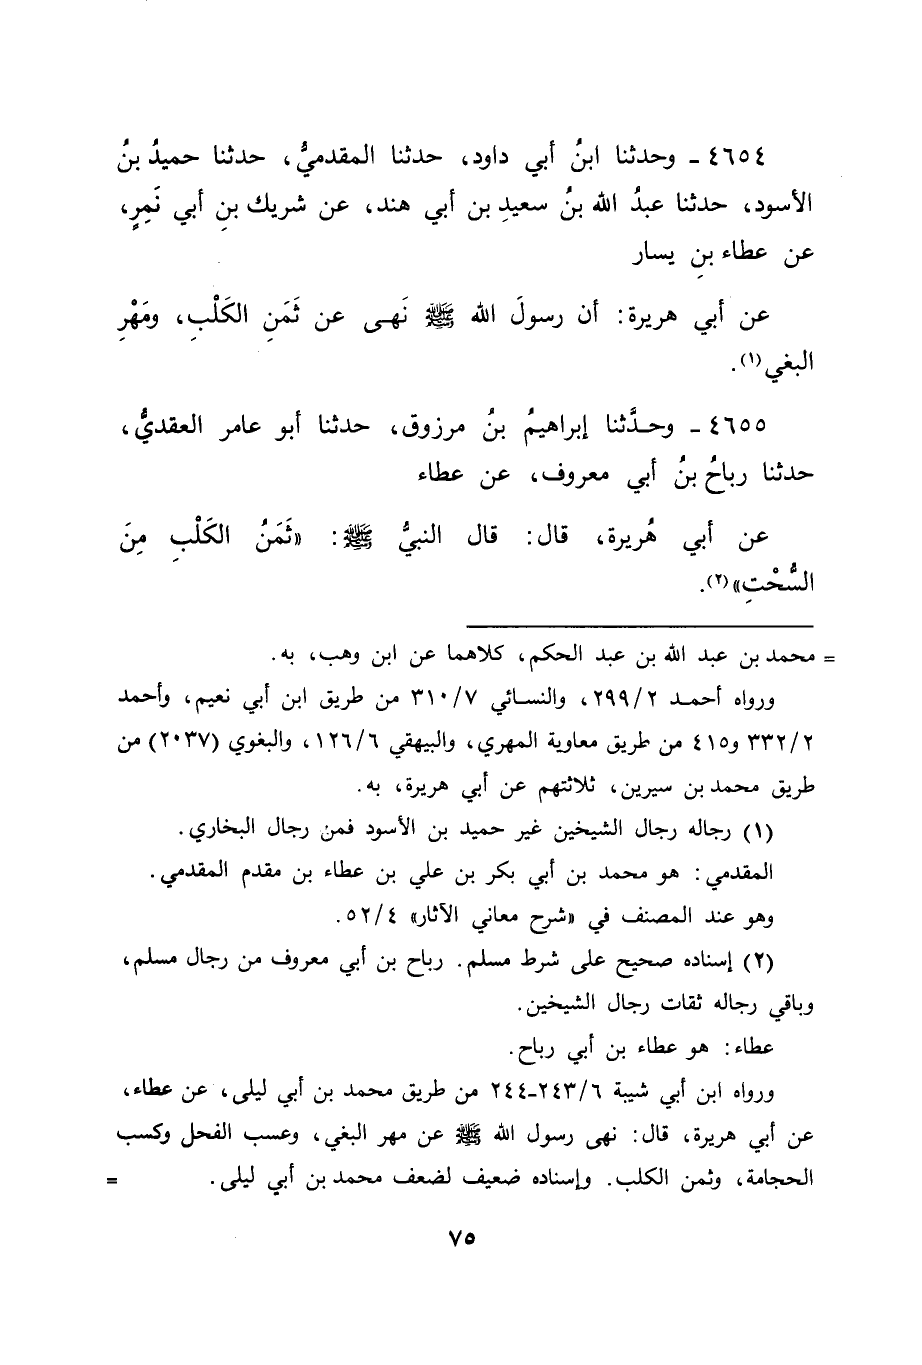 ٤٦٥٤ - وحدثنا ابنُ أبي داود، حدثنا المقدميُّ، حدثنا حميدُ بنُ
الأسود، حدثنا عبدُ الله بنُ سعيدِ بن أبي هند، عن شريك بنِ أبي نَمِرٍ،
عن عطاء بنِ يسار
عن أبي هريرة: أن رسولَ الله ﷺ نَهـى عن ثَمَنِ الكَلْبِ، ومَهْرِ
البغي(١).
٤٦٥٥ - وحـدَّثنا إبراهيمُ بنُ مرزوق، حدثنا أبو عامر العقديُّ،
حدثنا رباحُ بنُ أبي معروف، عن عطاء
عن أبي هُريرة، قال: قال النبيُّ ﷺ: «ثَمَنُ الكَلْبِ مِنَ
السُّحْتِ»(٢).
= محمد بن عبد الله بن عبد الحكم، كلاهما عن ابن وهب، به.
ورواه أحمـد ٢٩٩/٢، والنسـائي ٣١٠/٧ من طريق ابن أبي نعيم، وأحمد
٣٣٢/٢ و٤١٥ من طريق معاوية المهري، والبيهقي ١٢٦/٦، والبغوي (٢٠٣٧) من
طريق محمد بن سيرين، ثلاثتهم عن أبي هريرة، به.
(١) رجاله رجال الشيخين غير حميد بن الأسود فمن رجال البخاري.
المقدمي: هو محمد بن أبي بكر بن علي بن عطاء بن مقدم المقدمي.
وهو عند المصنف في «شرح معاني الآثار» ٥٢/٤.
(٢) إسناده صحيح على شرط مسلم. رباح بن أبي معروف من رجال مسلم،
وباقي رجاله ثقات رجال الشيخين.
عطاء: هو عطاء بن أبي رباح.
ورواه ابن أبي شيبة ٢٤٣/٦-٢٤٤ من طريق محمد بن أبي ليلى، عن عطاء،
عن أبي هريرة، قال: نهى رسول الله ﷺ عن مهر البغي، وعسب الفحل وكسب
الحجامة، وثمن الكلب. وإسناده ضعيف لضعف محمد بن أبي ليلى. =
٧٥